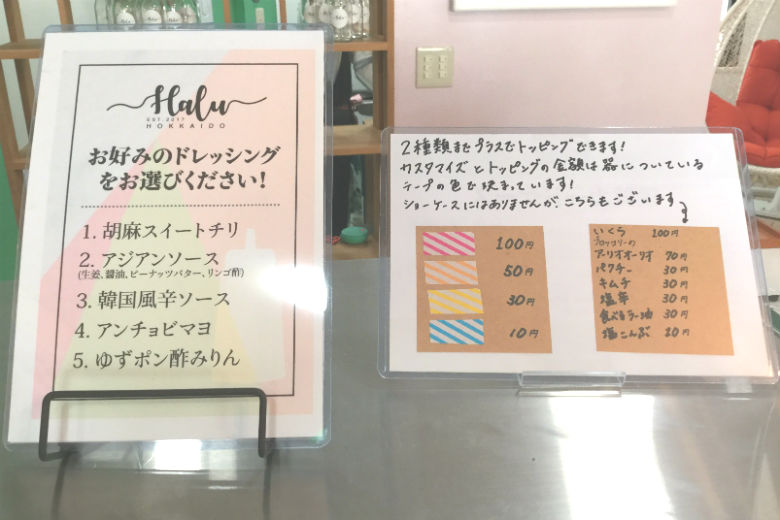 Halu
EST. 2017
HOKKAIDO
お好みのドレッシング
をお選びください!
1. 胡麻スイートチリ
2. アジアンソース
(生姜、醤油、ピーナッツバター、リンゴ酢)
3. 韓国風辛ソース
4. アンチョビマヨ
5. ゆずポン酢みりん
2種類までプラスでトッピングできます!
カスタマイズとトッピングの金額は器についている
テープの色で決まっています!
ショーケースにはありませんが、こちらもございます
100円
50円
30円
10円
いくら 100円
ブロッコリーの
アーリオオーリオ 70円
パクチー 30円
キムチ 30円
塩辛 30円
食べるラー油 30円
塩こんぶ 20円